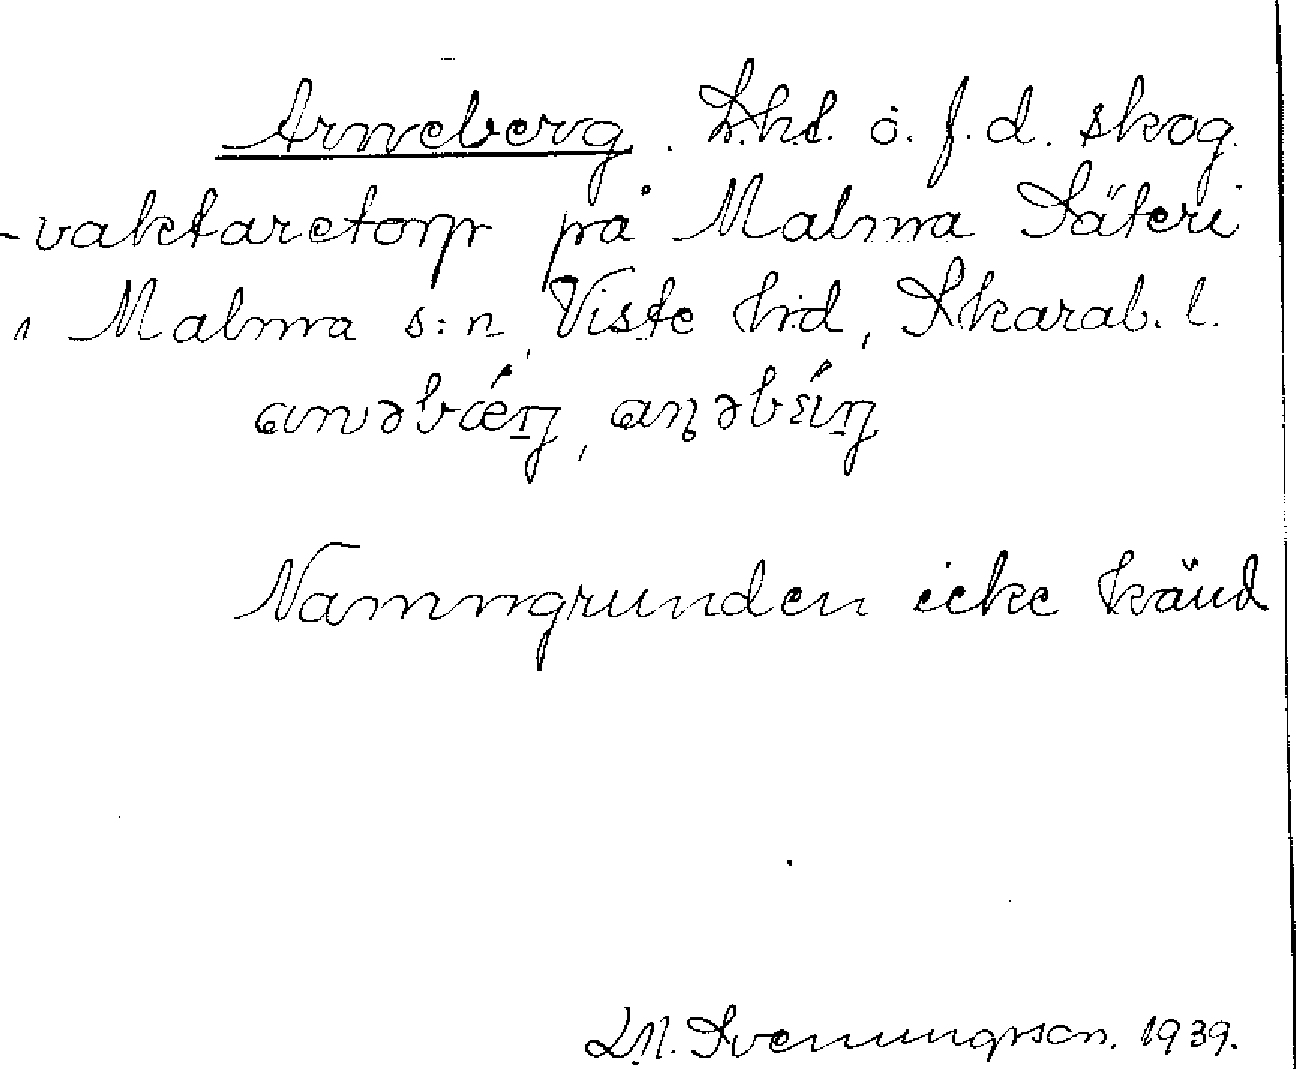 Arneberg. Lht. o. f.d. skog-
-vaktaretorp på Malma Säteri
i Malma s:n, Viste h:d, Skarab. l.
Namngrunden icke känd
L.N. Svenungsson. 1939.